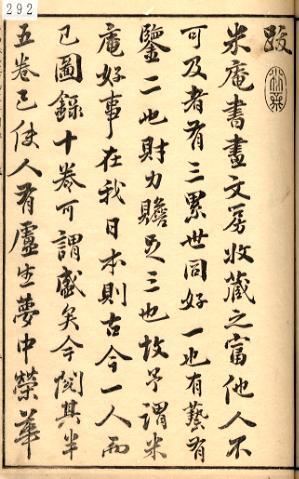 292
跋
米庵書畫文房收藏之富他人不
可及者有三累世同好一也有藝有
鑒二也財力贍足三也故予謂米
庵好事在我日本則古今一人而
已圖錄十卷可謂盛矣今閱其半
五卷已使人有盧生夢中榮華